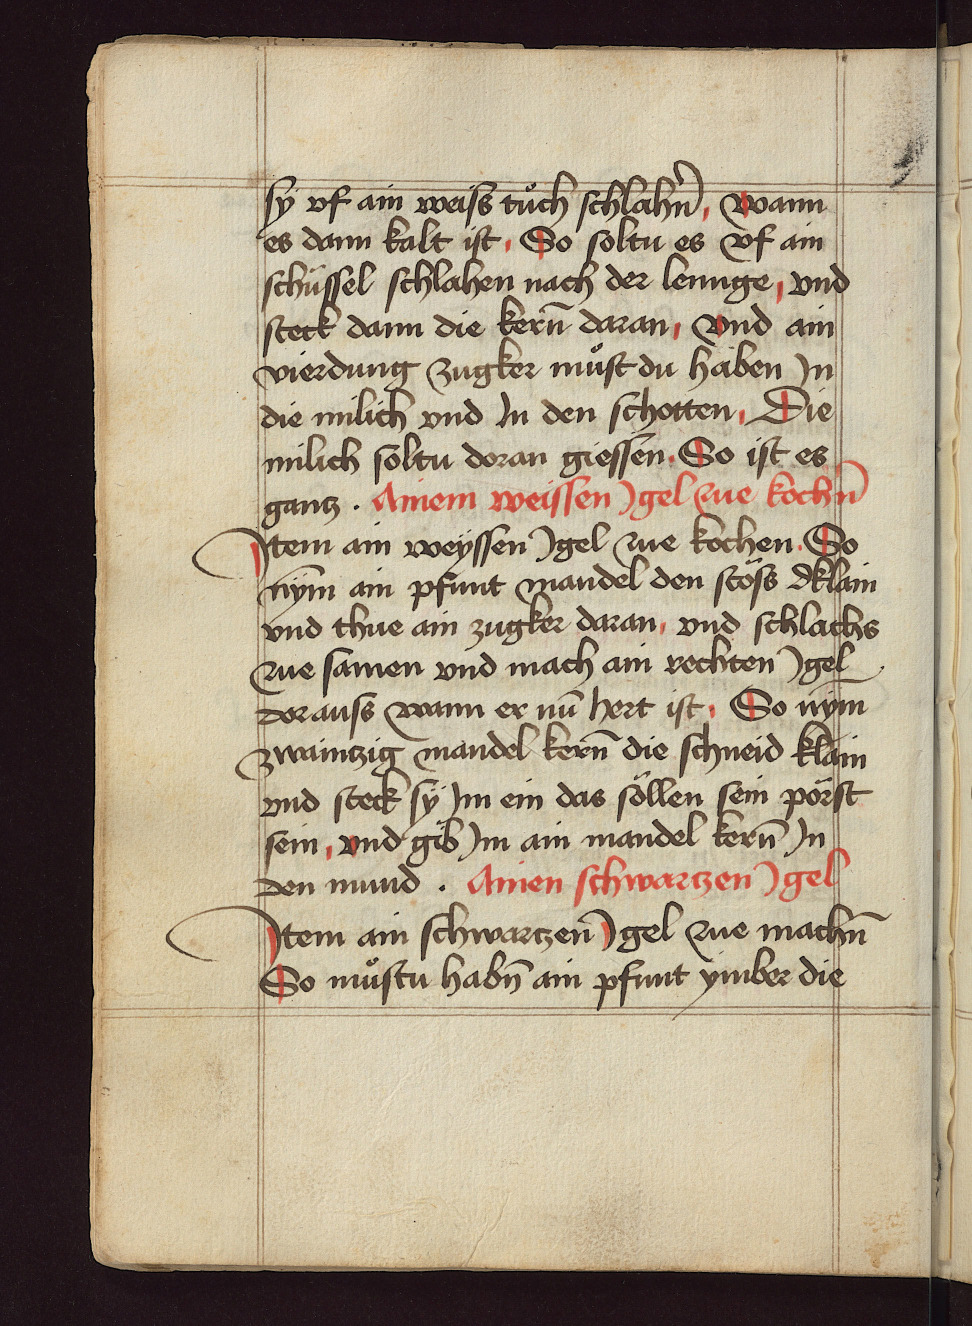 sy vf ain weiss tuͦch schlahn̄, wann
es dann kalt ist, So soltu es vf ain
schüssel schlahen nach der lennge, vnd
steck dann die kern̄ daran, vnd ain
vierdung zugker muͦst du haben In
die milich vnd In den schotten, Die
milich soltu doran giessen. So ist es
gantz . Ainem weissen Igel zue kochn̄
Item ain weyssen Igel zue kochen. So
nym̄ ain pfunt mandel den stöss klain
vnd thue ain zugker daran, vnd schlachs
zue samen vnd mach ain rechten Igel
dorauss wann er nu̅ hert ist, So nym̄
zwaintzig mandel kern̄ die schneid klain
vnd steck sy Im ein das söllen sein pörst
sein, vnd gib Im ain mandel kern̄ In
den mund . Ainen schwartzen Igel
Item ain schwartzen Igel zue machn̄
So muͦstu habn̄ ain pfunt ymber die